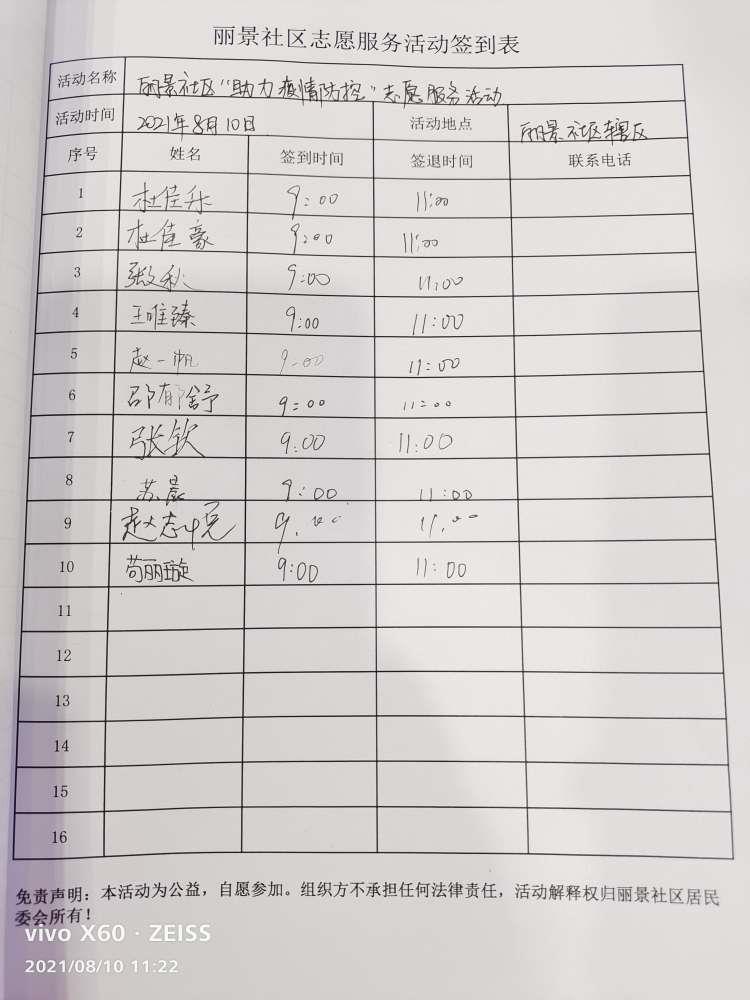 丽景社区志愿服务活动签到表
活动名称 丽景社区“助力疫情防控”志愿服务活动
活动时间 2021年8月10日 活动地点 丽景社区辖区
序号 姓名 签到时间 签退时间 联系电话
1 杜佳乐 9:00 11:00
2 杜佳豪 9:00 11:00
3 张文秋 9:00 11:00
4 王唯臻 9:00 11:00
5 赵一帆 9:00 11:00
6 邵郁舒 9:00 11:00
7 张钦 9:00 11:00
8 苏晨 9:00 11:00
9 赵志 9:00 11:00
10 苟丽璇 9:00 11:00
11
12
13
14
15
16
免责声明：本活动为公益，自愿参加。组织方不承担任何法律责任，活动解释权归丽景社区居民
委会所有！
vivo X60 · ZEISS
2021/08/10 11:22